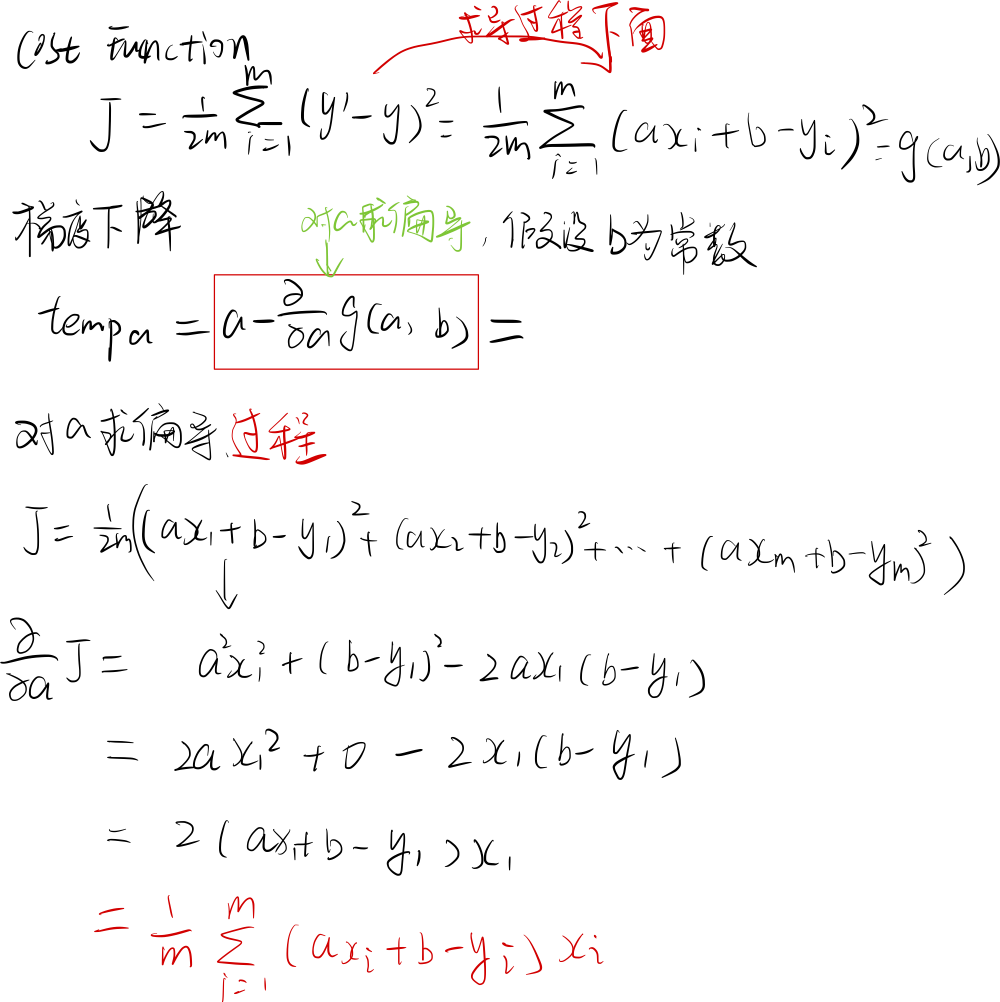 求导过程下面
Cost Function
J = 1/2m ∑_{i=1}^{m} (y' - y)^2 = 1/2m ∑_{i=1}^{m} (ax_i + b - y_i)^2 = g(a,b)
梯度下降 对a求偏导, 假设b为常数
temp_a = a - ∂/∂a g(a, b) =
对a求偏导过程
J = 1/2m ((ax_1 + b - y_1)^2 + (ax_2 + b - y_2)^2 + ... + (ax_m + b - y_m)^2)
∂/∂a J = a^2x_1^2 + (b - y_1)^2 - 2ax_1(b - y_1)
= 2ax_1^2 + 0 - 2x_1(b - y_1)
= 2(ax_1 + b - y_1)x_1
= 1/m ∑_{i=1}^{m} (ax_i + b - y_i)x_i